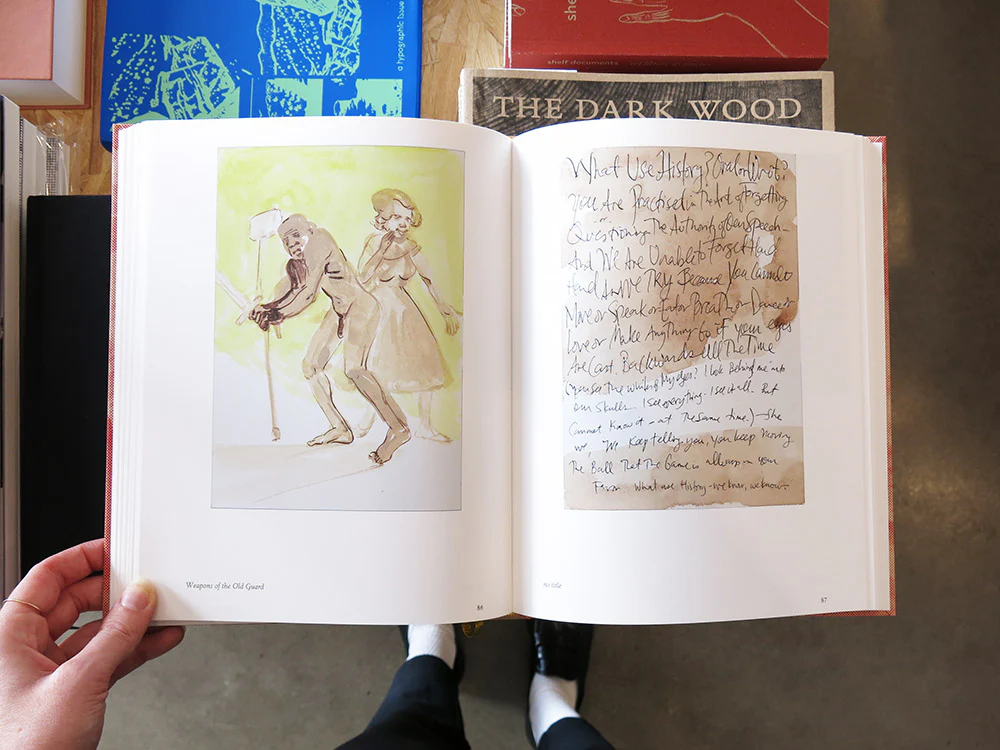 a typographic issue
shelf documents
THE DARK WOOD
What Use History? Oral or Not?
You Are Practised in The Art of Forgetting
Questioning The Authority of Our Speech –
And We Are Unable to Forget Hard
Hard As We Try Because You Cannot
Move or Speak or Eat or Breath or Dance or
Love or Make Anything Go if your eyes
Are Cast Backwards All The Time
(you see the whites of My eyes? I look Behind me into
our skulls I see everything. I see it all. But
Cannot Know it – at The same time.) – She
we, We Keep telling you, you keep Moving
The Ball That The Game is always in your
Favor What use History – we know, we know –
Weapons of the Old Guard
no title
86
87